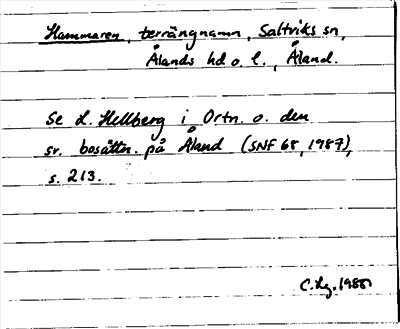 Hammaren, terrängnamn, Saltviks sn,
Ålands hd o. l., Åland.
Se L. Hellberg i Ortn. o. den
sv. bosättn. på Åland (SNF 68, 1987),
s. 213.
C. Hg. 1988